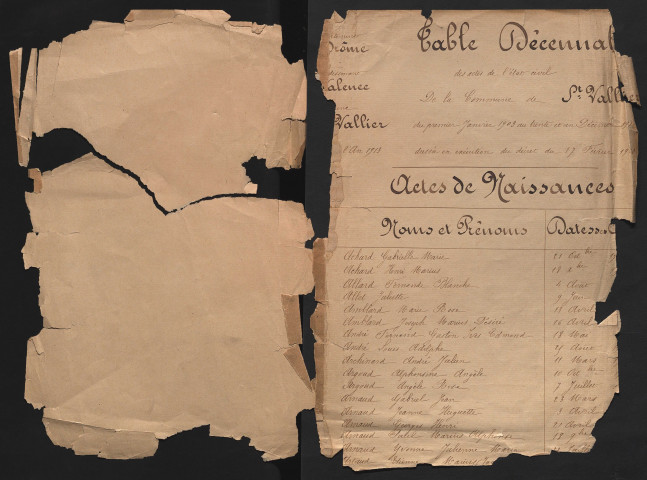 Drôme
Valence
Vallier
l'An 1913
Table Décennal
des actes de l'état civil
De la Commune de St Vallier
du premier Janvier 1903 au trente et un Décembre
dressée en exécution du décret du 17 Février
Actes de Naissances
Noms et Prénoms Dates
Achard Gabrielle Marie 21
Achard Henri Marius 18
Allard Fernande Blanche 4 Août
Allot Juliette 9
Amblard Marie Rose 18 Avril
Amblard Joseph Marius Désiré 26 Avril
André Fernand Gaston Edmond 18 Mai
André Louis Adolphe 21 Août
Archinard André Julien 11 Mars
Argoud Alphonsine Angèle 11 Oct
Argoud Angèle Rosa 7 Juillet
Arnaud Gabriel Jean 28 Mars
Arnaud Jeanne Huguette 3 Avril
Arnaud Georges Henri 21 Avril
Arnaud Marius Alphonse 18
Arnaud Yvonne Julienne
Arnaud Étienne Marius